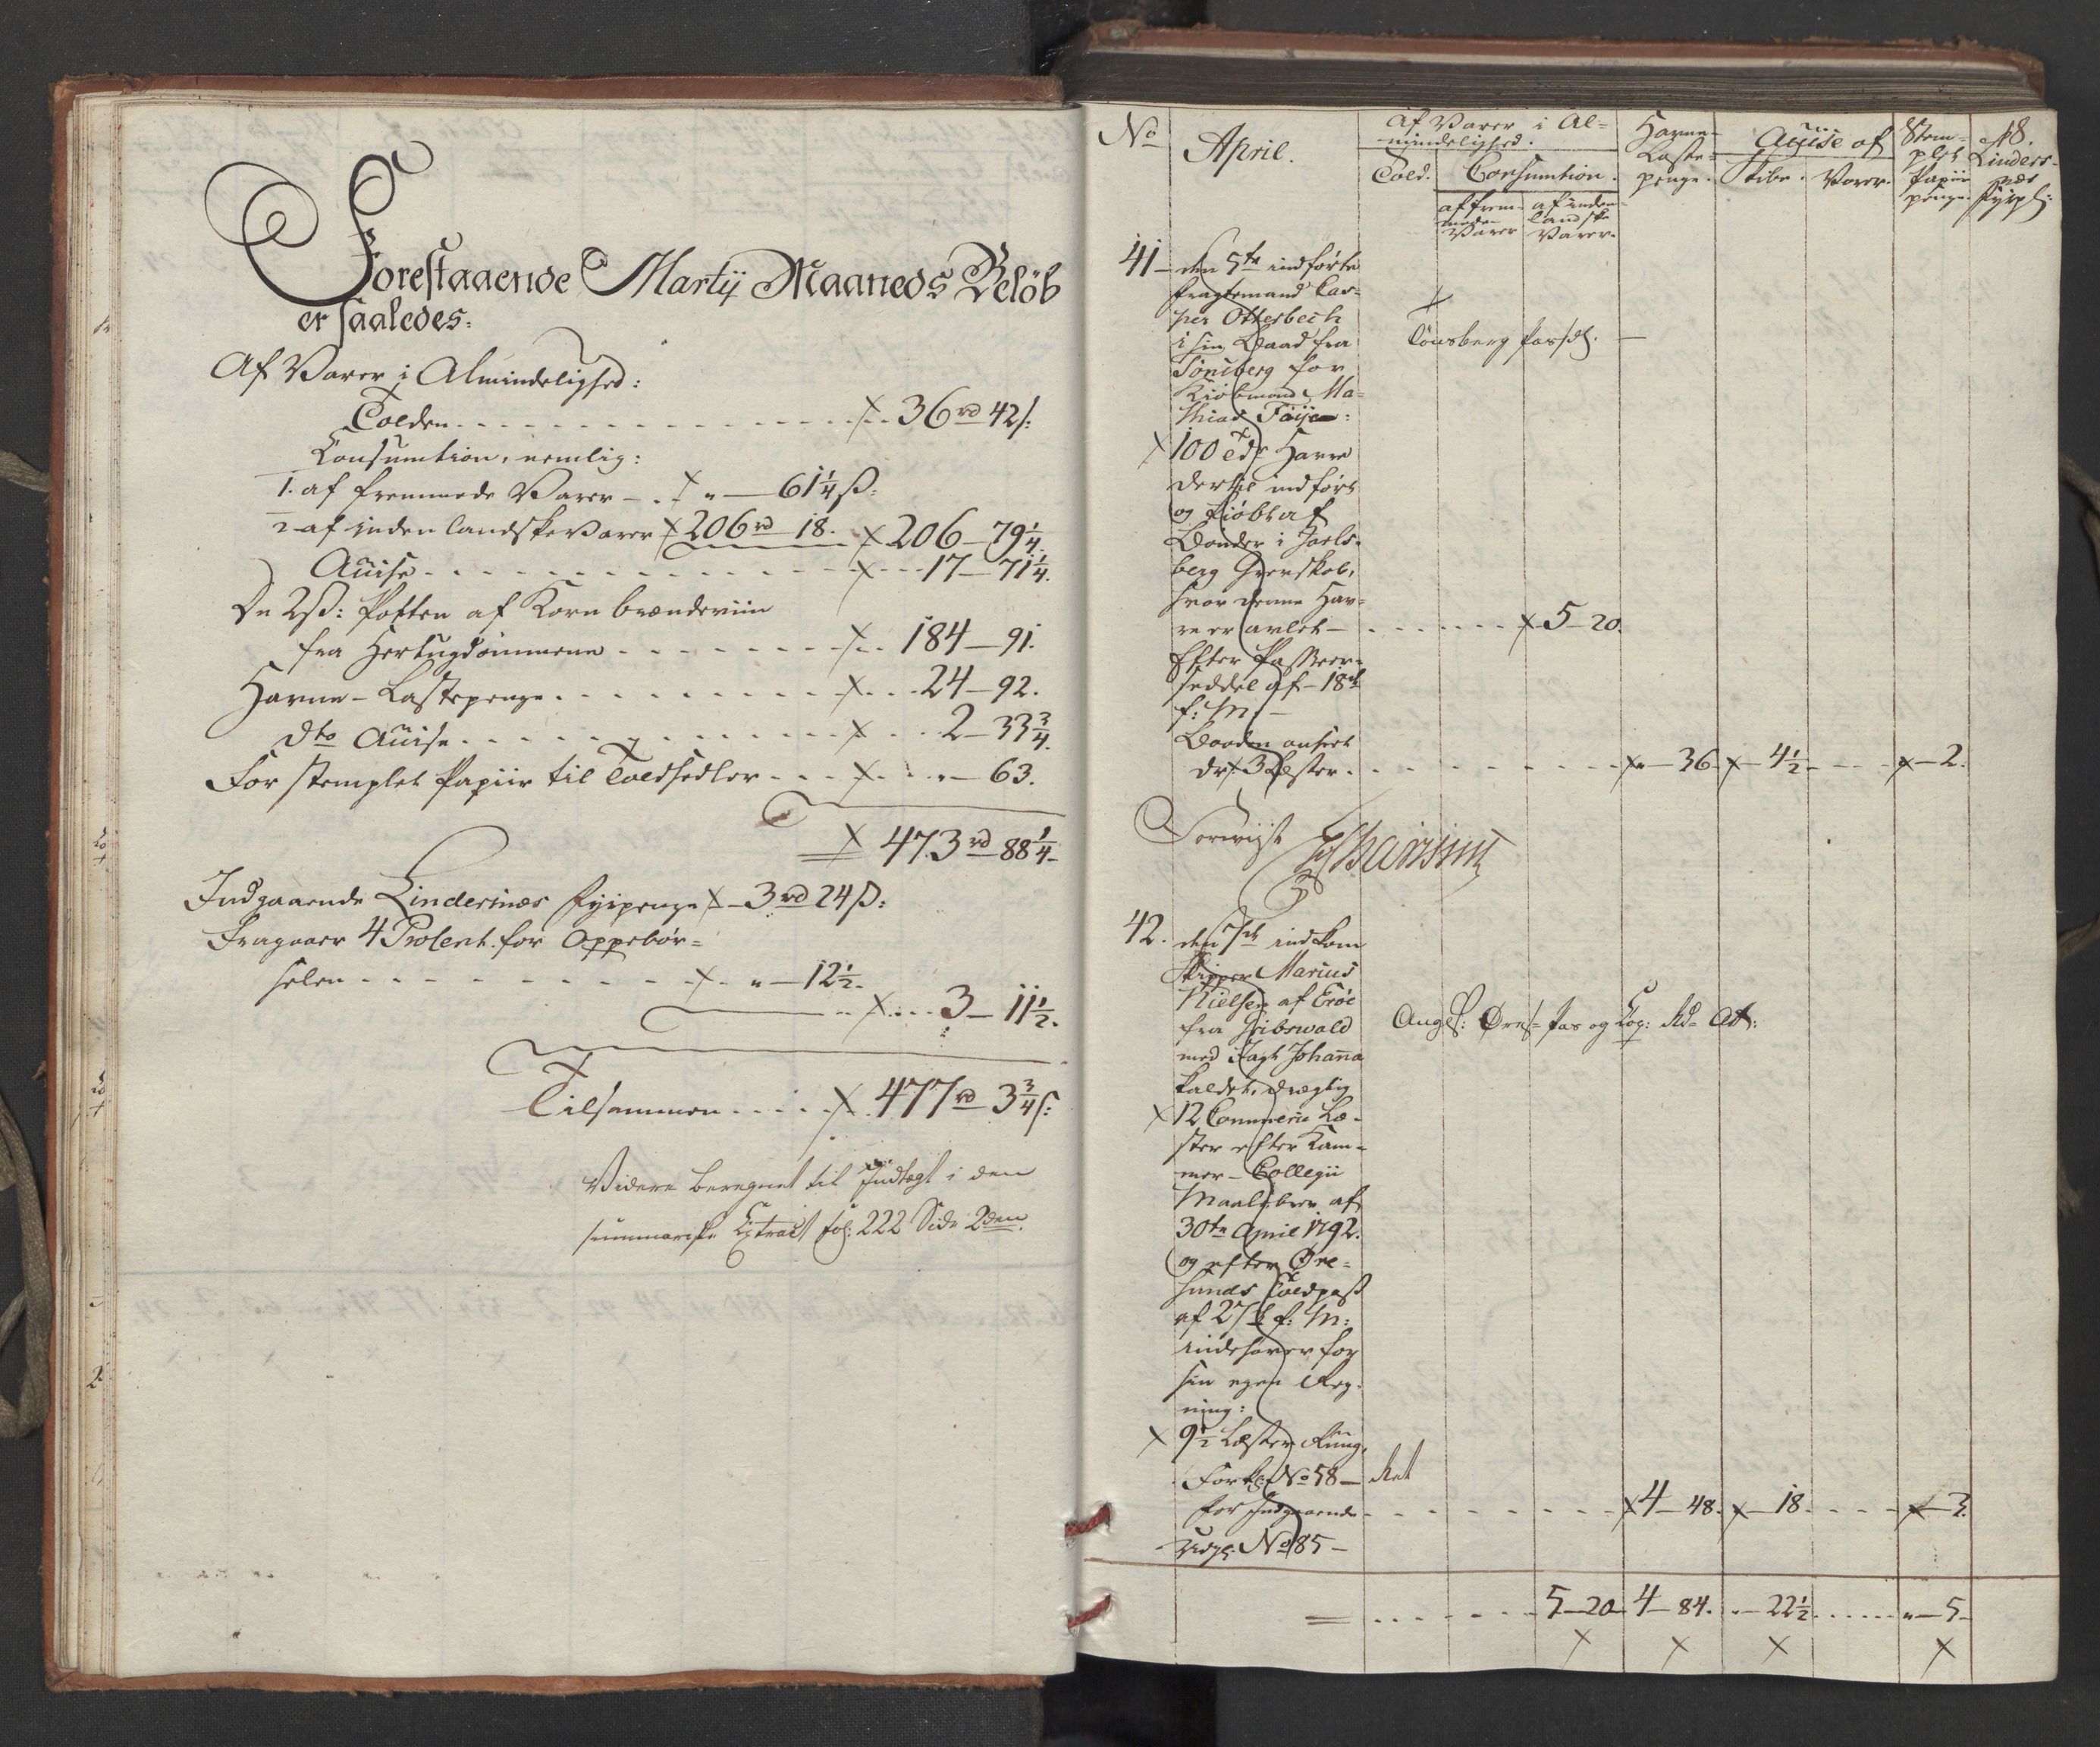 Forestaaende Martij Maaneds Beløb
er saaledes:
Af Varer i Almindelighed:
Tolden - - - 36 rd 42 s:
Consumtion, nemlig:
1. af fremmede Varer - " - 61 1/4 ß:
2 af indenlandske Varer 206 rd 18. 206 - 79 1/4.
Acise - - - 17 - 71 1/4.
De 2 ß: Potten af Korn brændeviin
fra Hertugdømmene - - - 184 - 91.
Havne-Lastepenge - - - 24 - 92.
dto Acise - - - 2 - 33 3/4.
For stemplet Papiir til Toldsedler - - - " - 63.
473 rd 88 1/4
Indgaaende Lindesnæs Fyrpenge 3 rd 24 ß:
Fragaaer 4 Procent for Oppebør=
selen - - - " - 12 1/2.
3 - 11 1/2.
Tilsammen - - - 477 rd 3 3/4 s:
Videre beregnet til Indtægt i den
summariske Extract fol: 222 Side 2den.
No
April.
Af Varer i Al=
mindelighed.
Told. Consumtion.
af frem=
mede
Varer
af inden=
landske
Varer.
Havne=
Laste=
penge.
Acise af
Skibe. Varer.
Stem=
plet
Papiir
penge.
48.
Lindes=
næs
Fyrp:
41 - den 5te indførte
Fragtemand Cas=
per Otterbech
i sin Baad fra
Tønsberg for
Kiøbmand Ma=
thias Føyen:
Tønsberg Pass:
100 tdr Havre
dertil indført
og kiøbt af
Bønder i Jarls=
berg Grevskab,
hvor denne Hav=
re er avlet - - - 5 - 20.
Efter Passeer=
seddel af 18de
f: M: -
Baaden anseet
dr: 3 Læster. - - - " - 36. - 4 1/2 - - - 2.
42. den 7de indkom
Skipper Marius
Nielsen af Eröe
fra Gribswald
med Jagt Johanna
kaldet, drægtig
12 Commerce Læ=
ster efter Kam=
mer-Collegii
Maalebrev af
30te April 1792.
og efter Øre=
sunds Toldpass
af 27de f: M:
indehaver for
sin egen Reg=
ning:
9 1/2 Læster Rug,
No 58 -
for Indgaaende - - - 4 - 48. - 18. - - - 3.
Udg: No 85 -
5 - 20. 4 - 84. " - 22 1/2 - - - " - 5.